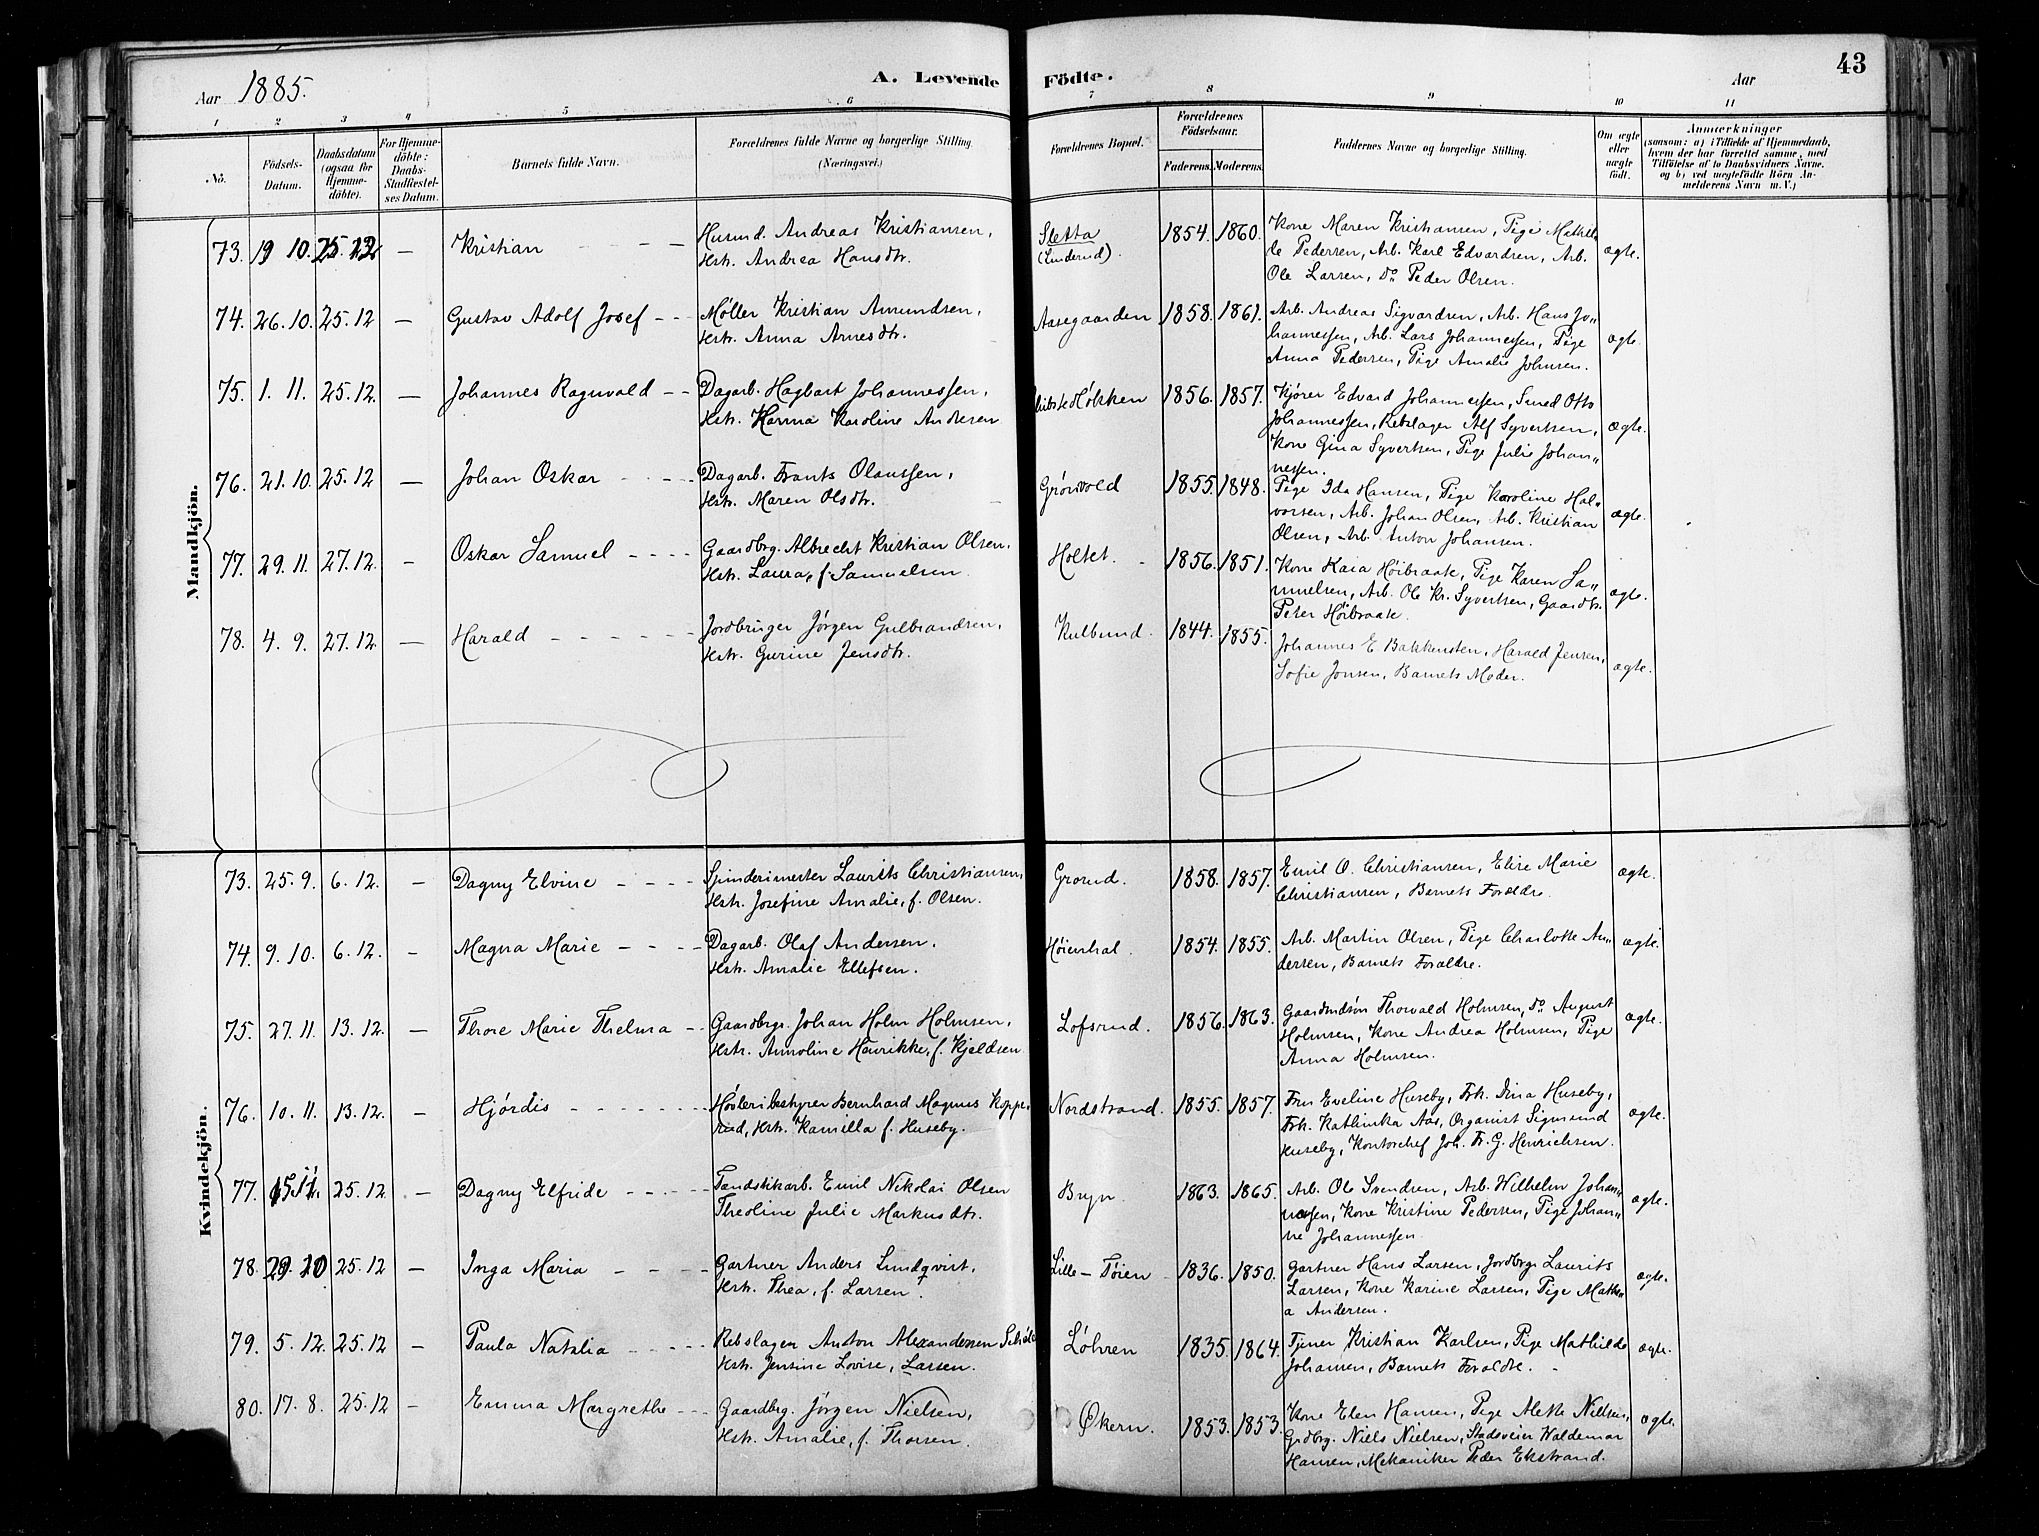 43
Aar 1885.
A. Levende Födte.
Aar
1 2 3 4 5 6 7 8 9 10 11
No.
Födsels-Datum.
Daabsdatum (ogsaa for Hjemme-döbte).
For Hjemme-döbte: Daabs-Stadfæstel-ses Datum.
Barnets fulde Navn.
Forældrenes fulde Navne og borgerlige Stilling. (Næringsvei.)
Forældrenes Bopæl.
Forældrenes Födselsaar.
Faderens. Moderens.
Faddernes Navne og borgerlige Stilling.
Om ægte eller uægte födt.
Anmærkninger
(saasom: a) i Tilfælde af Hjemmedaab,
hvem der har forrettet samme, med
Tilföielse af to Daabsvidners Navne.
og b) ved uægtefödte Börn An-
melderens Navn m. V.)
Mandkjön.
73. 19 10. 25. 12 — Kristian — — Husmd. Andreas Kristiansen, Sletta 1854. 1860. Kone Maren Kristiansen, Pige Mathil-
Hstr. Andrea Hansdtr. (Linderud). de Pedersen, Arb. Karl Edvardsen, Arb. ægte.
Ole Larsen, Do Peder Olsen.
74. 26. 10. 25. 12 — Gustav Adolf Josef — — Møller Kristian Amundsen, Aasegaarden 1858. 1861. Arb. Andreas Sigvardsen, Arb. Hans Jo„
Hstr. Anna Arnesdtr. hannessen, Arb. Lars Johannessen, Pige ægte.
Anna Pedersen, Pige Amalie Johnsen.
75. 1. 11. 25. 12. — Johannes Ragnvald — — Dagarb. Hagbart Johannessen, Høkken 1856. 1857. Kjører Edvard Johannessen, Smed Otto
Hstr. Hanna Karoline Andersen Johannessen, Rebslager Alf Syvertsen, ægte.
Kone Gina Syvertsen, Pige Julie Johan„
nessen.
76. 21. 10. 25. 12 — Johan Oskar Dagarb. Frants Olaussen, Grønvold 1855. 1848. Pige Ida Hansen, Pige Karoline Hal„
Hstr. Maren Olsdtr. vorsen, Arb. Johan Olsen, Arb. Kristian ægte.
Olsen, Arb. Anton Johansen.
77. 29. 11. 27. 12. — Oskar Samuel — — — — Gaardbrg. Albrecht Kristian Olsen, Holtet. 1856. 1851. Kone Kaia Høibraate, Pige Karen Sa„
Hstr. Laura, f. Samuelsen. muelsen, Arb. Ole Kr. Syvertsen, Gaardbr. ægte.
Peter Høibraate.
78. 4. 9. 27. 12. — Harald — — — — — — Jordbruger Jørgen Gulbrandsen, Kulbund. 1844. 1855. Johannes E. Bakkensten, Harald Jensen,
Hstr. Gurine Jensdtr. Sofie Jonsen, Barnets Moder. ægte.
Kvindekjön.
73. 25. 9. 6. 12. — Dagny Elvine — — — — Spinderimester Laurits Christiansen, Grorud. 1858. 1857. Emil O. Christiansen, Elise Marie ægte.
Hstr. Josefine Amalie, f. Olsen. Christiansen, Barnets Forældre.
74. 9. 10. 6. 12. — Magna Marie — — — — Dagarb. Olaf Andersen, Høienhal. 1854. 1855. Arb. Martin Olsen, Pige Charlotte An„ ægte.
Hstr. Amalie Ellefsen. dersen, Barnets Forældre.
75. 27. 11. 13. 12. — Thore Marie Thelma — Gaardbrgr. Johan Holm Holmsen, Lofsrud. 1856. 1863. Gaardmdsøn Thorvald Holmsen, Do August ægte.
Hstr. Annoline Henrikke, f. Kjeldsen. Holmsen, Kone Andrea Holmsen, Pige
Anna Holmsen.
76. 10. 11. 13. 12. — Hjørdis — — — — — Høvleribestyrer Bernhard Magnus Koppe- Nordstrand. 1855. 1857. Fru Eveline Huseby, Frk. Dina Huseby,
rud, Hstr. Kamilla f. Huseby. Frk. Kathinka Aas, Organist Sigmund ægte.
Huseby, Kontorchef Joh. Fr. G. Henrichsen.
77. 15. 11. 25. 12. — Dagny Elfride — — — — Tændstikarb. Emil Nikolai Olsen Bryn. 1863. 1865. Arb. Ole Svendsen, Arb. Wilhelm Johan„
Theoline Julie Markusdtr. nessen, Kone Kristine Pedersen, Pige Johan„ ægte.
ne Johannessen.
78. 29. 10 25. 12 — Inga Maria — — — — Gartner Anders Lindqvist, Lille–Tøien 1836. 1850. Gartner Hans Larsen, Jordbrg. Laurits
Hstr. Thea, f. Larsen. Larsen, Kone Karine Larsen, Pige Math„ ægte.
a Andersen.
79. 5. 12. 25. 12 — Paula Natalia — — — — Rebslager Anton Alexandersen Løhren 1835. 1864. Tjener Kristian Karlsen, Pige Mathilde ægte.
Hstr. Jensine Lovise, Larsen. Johansen, Barnets Forældre.
80. 17. 8. 25. 12 — Emma Margrethe — — Gaardbrg. Jørgen Nielsen, Økern. 1853. 1853. Kone Elen Hansen, Pige Alette Nielsen, ægte.
Hstr. Amalie, f. Thorsen. Grdbrg. Niels Nielsen, Stadsveier Waldemar
Hansen, Mekaniker Peder Ekstrand.